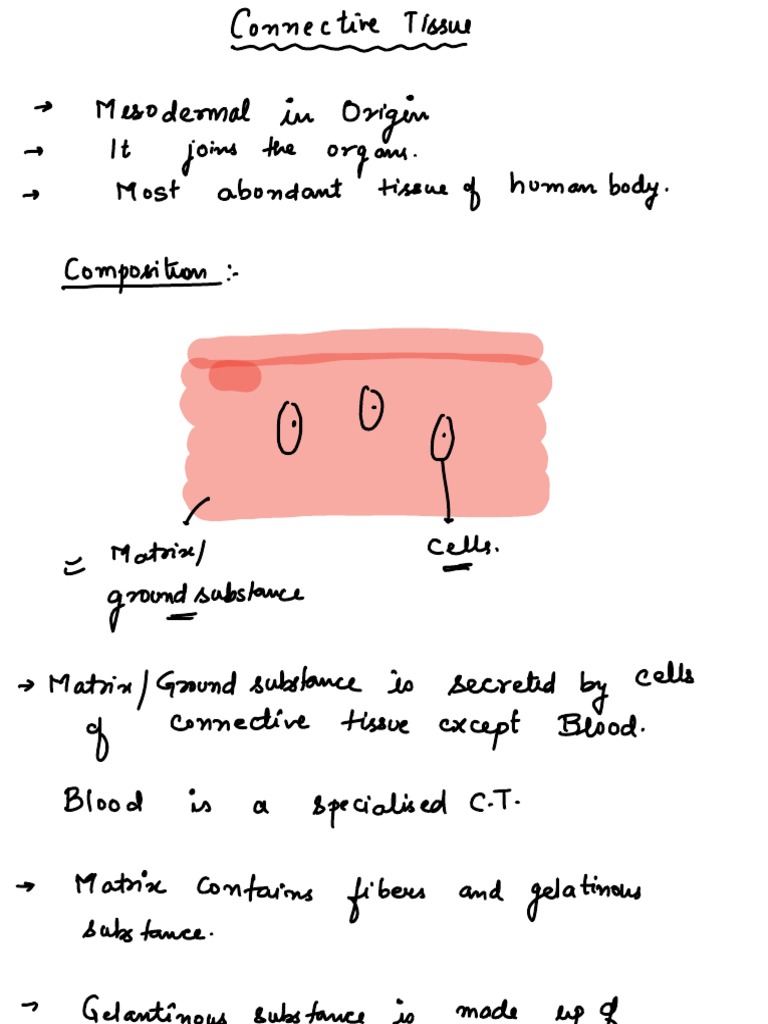 Connective Tissue
→ Mesodermal in Origin
→ It joins the organs.
→ Most abondant tissue of human body.
Composition :-
Matrix/
ground substance
Cells.
→ Matrix/Ground substance is secreted by cells
of connective tissue except Blood.
Blood is a specialised C.T.
→ Matrix contains fibers and gelatinous
substance.
→ Gelantinous substance is made up of